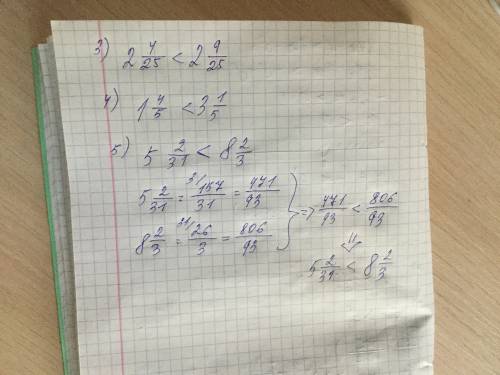 3) 2 4/25 < 2 9/25
4) 1 4/5 < 3 1/5
5) 5 2/31 < 8 2/3
5 2/31 = 3/ 157/31 = 471/93
8 2/3 = 31/ 26/3 = 806/93 } => 471/93 < 806/93
⇓
5 2/31 < 8 2/3